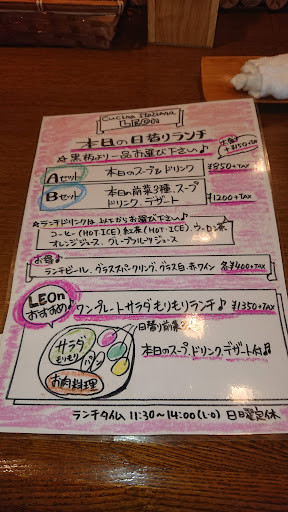 Cucina Italiana
LEOn
本日の日替りランチ
☆黒板より一品お選び下さい♪
大盛り
+¥150+TAX
Aセット 本日のスープ&ドリンク ¥850+TAX
Bセット 本日の前菜3種、スープ
ドリンク、デザート ¥1200+TAX
☆ランチドリンクは以下からお選び下さい♪
コーヒー(HOT・ICE) 紅茶(HOT・ICE)、ウーロン茶
オレンジジュース、グレープフルーツジュース
お昼
ランチビール、グラススパークリング、グラス白、赤ワイン 各¥400+TAX
LEOn
おすすめ♪
ワンプレートサラダもりもりランチ♪ ¥1350+TAX
日替り前菜
サラダ
もりもり
パン
お肉料理
本日のスープ、ドリンク、デザート付♪
ランチタイム 11:30~14:00(L・O) 日曜定休